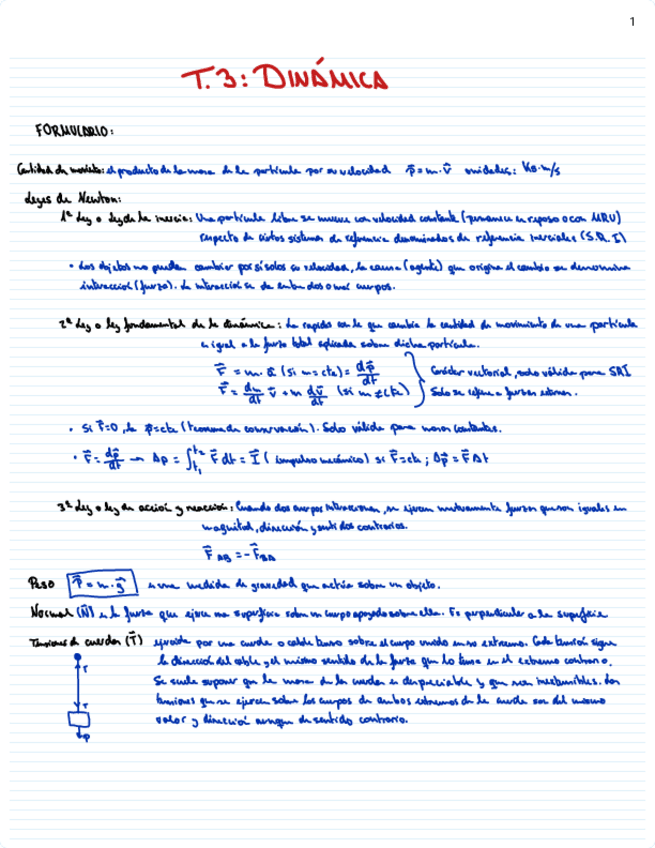 1
T.3: DINÁMICA
FORMULARIO:
Cantidad de movimiento: el producto de la masa de la partícula por su velocidad p⃗ = m · v⃗ unidades: KG·m/s
Leyes de Newton:
1ª Ley o ley de la inercia: Una partícula libre se mueve con velocidad constante (permanece en reposo o con MRU)
respecto de ciertos sistemas de referencia denominados de referencia inerciales (S.R.I)
• Los objetos no pueden cambiar por sí solos su velocidad, la causa (agente) que origina el cambio se denomina
interacción (fuerza). La interacción se da entre dos o más cuerpos.
2ª Ley o ley fundamental de la dinámica: La rapidez con la que cambia la cantidad de movimiento de una partícula
es igual a la fuerza total aplicada sobre dicha partícula.
F⃗ = m · a⃗ (si m = cte) = dp⃗/dt } Carácter vectorial, solo válida para SRI
F⃗ = dm/dt v⃗ + m dv⃗/dt (si m ≠ cte) } Solo se refiere a fuerzas externas.
• Si F⃗=0, la p⃗=cte (teorema de conservación). Solo válida para masas constantes.
• F⃗ = dp⃗/dt → Δp = ∫t₁^t₂ F⃗ dt = I⃗ (impulso mecánico) si F⃗=cte; Δp⃗ = F⃗ Δt
3ª Ley o ley de acción y reacción: Cuando dos cuerpos interaccionan, se ejercen mutuamente fuerzas que son iguales en
magnitud, dirección y sentidos contrarios.
F⃗ AB = -F⃗ BA
Peso P⃗ = m · g⃗ es una medida de gravedad que actúa sobre un objeto.
Normal (N⃗) es la fuerza que ejerce una superficie sobre un cuerpo apoyado sobre ella. Es perpendicular a la superficie
Tensiones de cuerdas (T⃗) ejercida por una cuerda o cable tenso sobre el cuerpo unido en su extremo. Cada tensión sigue
la dirección del cable y el mismo sentido de la fuerza que lo tensa en el extremo contrario.
Se suele suponer que la masa de la cuerda es despreciable y que son inextensibles. Las
tensiones que se ejercen sobre los cuerpos de ambos extremos de la cuerda son del mismo
valor y dirección aunque de sentido contrario.
T
T
P